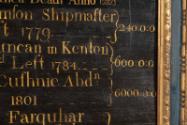 Dead Anno
Shipmaster
t 1779. 240:0:0
uncan in Kenton
d Left 1784 600:0:0
Cushnie Abdⁿ
1801 6000:0:0
Farquhar